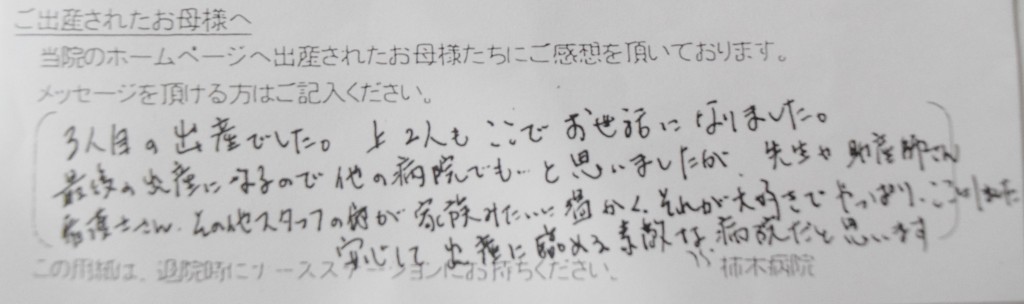 ご出産されたお母様へ
当院のホームページへ出産されたお母様たちにご感想を頂いております。
メッセージを頂ける方はご記入ください。
3人目の出産でした。上2人もここでお世話になりました。
最後の出産になるので他の病院でも…と思いましたが、先生や助産師さん
看護士さん、その他スタッフの方が家族みたいに温かく、それが大好きでやっぱり、ここにしました
安心して出産に臨める素敵な病院だと思います
この用紙は、退院時にナースステーションにお持ちください。 柿木病院